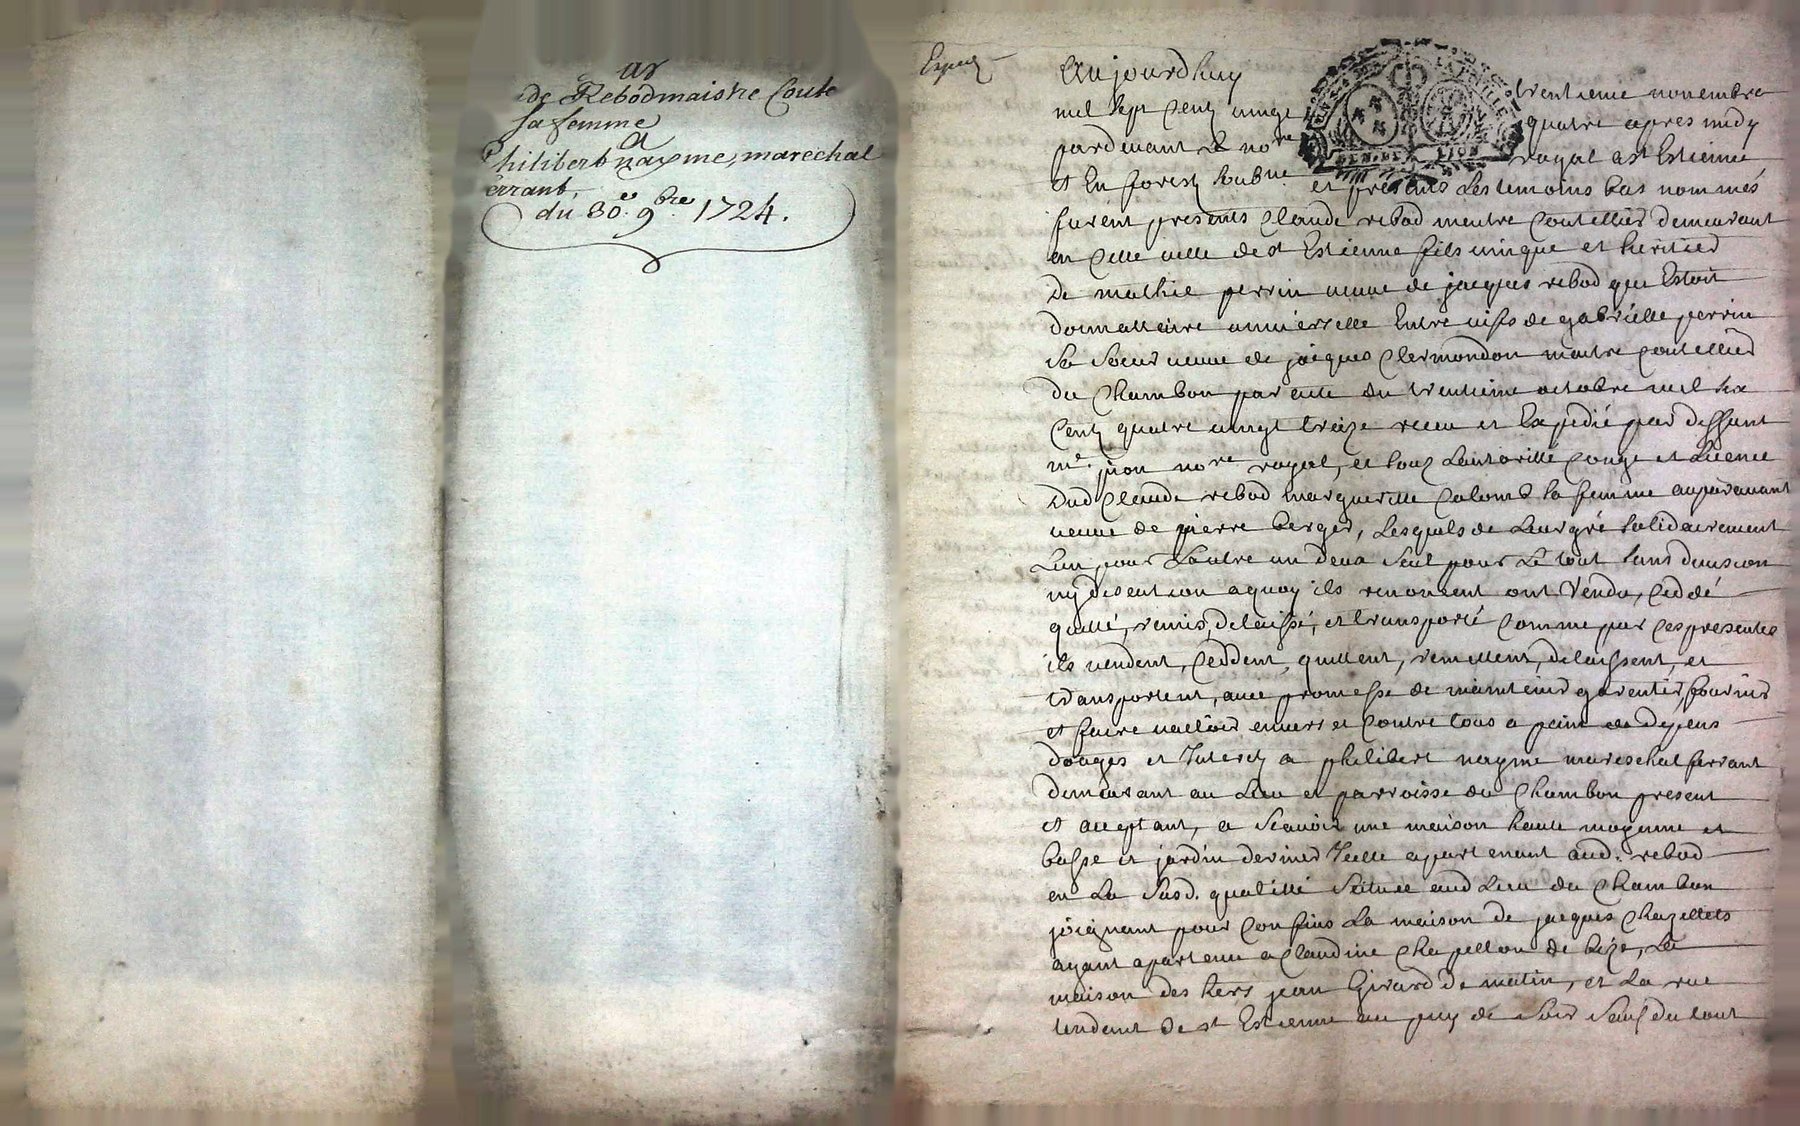 par
de Rebodmaistre Coute
sa femme
a
Philibert nayme, marechal
ferrant,
du 30e. 9bre. 1724.
Expedié
Aujourdhuy trentieme novembre
mil sept cent vingt quatre apres midy
pardevant le nore royal a st Estienne
et en forest soubne. et presents les temoins bas nommés
furent presents Claude rebod maitre Coutellier demeurant
en cette ville de st Estienne fils unique et heritier
de mathie perrin veuve de jacques rebod qui Estoit
donnattaire universelle Entre vifs de gabrielle perrin
sa soeur veuve de jacques Clermondon maitre coutellier
du Chambon par acte du trentieme octobre mil six
Cent quatre vingt treize receu et Expedié par deffunt
me. pion nore royal, et sous Lautorité Conge et Licence
dud Claude rebod margueritte Colomb sa femme auparavant
veuve de pierre berger, Lesquels de Leur gré solidairement
Lun pour Lautre un deux seul pour Le tout sans division
ny discution aquoy ils renoncent ont Vendu, Ceddé
quitté, remis, delaissé, et transporté Comme par ces presentes
ils vendent, Ceddent, quittent, remettent, delaissent, et
transportent, avec promesse de maintenir garentir, fournir
et faire valloir envers et Contre tous a peine de depens
domages et Interets a philibert nayme mareschal ferrant
demeurant au Lieu et parroisse du Chambon present
et acceptant, a scavoir une maison haute moyenne et
basse et jardin derrier Icelle apartenant aud. rebod
en La susd. qualitté scituée aud Lieu du Chambon
joignant pour Confins La maison de jacques Chazellets
ayant apartenu a Claudine Chapellon de bize, La
maison des hers jean Girard de matin, et La rue
tendant de st Estienne au puy de soir sauf du tout